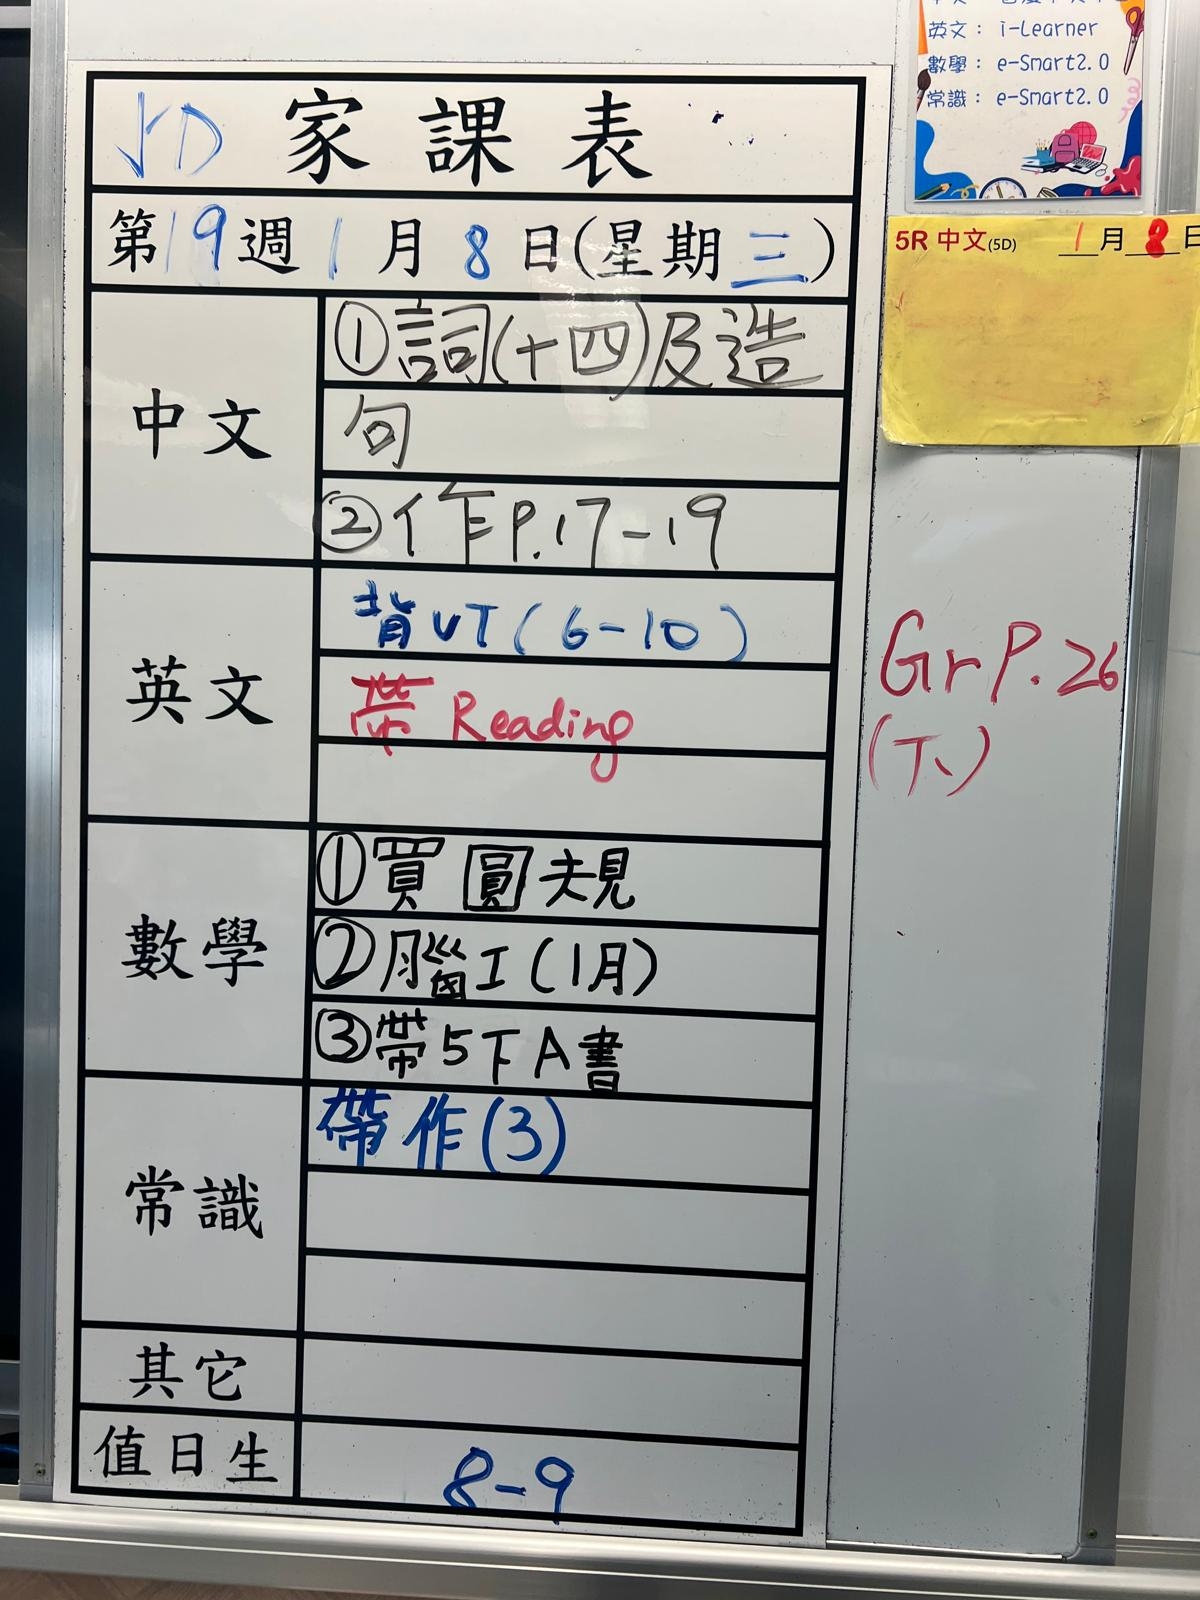 英文： i-Learner
數學： e-Smart2.0
常識： e-Smart2.0
5D 家課表
第19週1月8日(星期三)
5R 中文(5D) 1月8日
中文
①詞(十四)及造
句
②作P.17-19
英文
背VT(6-10)
帶 Reading
GrP.26
(下)
數學
①買圓規
②腦工(1月)
③帶5下A書
常識
帶作(3)
其它
值日生
8-9